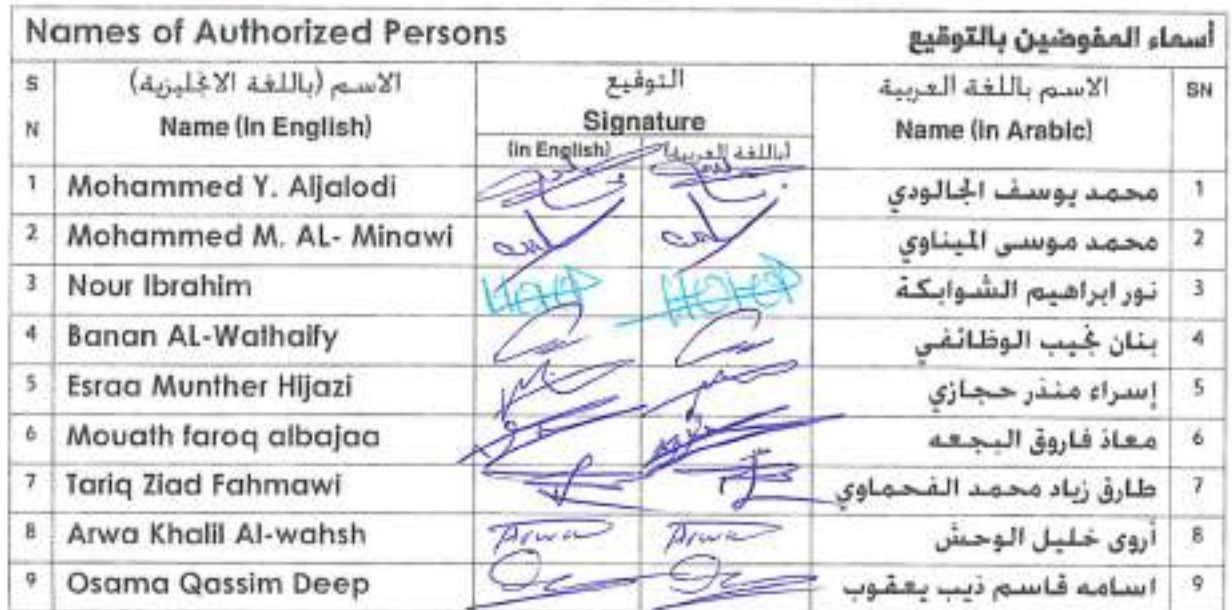 Names of Authorized Persons أسماء المفوضين بالتوقيع
S N الاسم (باللغة الانجليزية) Name (In English) التوقيع Signature الاسم باللغة العربية Name (in Arabic) SN
(in English) (باللغة العربية)
1 Mohammed Y. Aljalodi محمد يوسف الجالودي 1
2 Mohammed M. AL- Minawi محمد موسى الميناوي 2
3 Nour Ibrahim نور ابراهيم الشوابكة 3
4 Banan AL-Wathaify بنان نجيب الوظائفي 4
5 Esraa Munther Hijazi إسراء منذر حجازي 5
6 Mouath faroq albajaa معاذ فاروق البجعه 6
7 Tariq Ziad Fahmawi طارق زياد محمد الفحماوي 7
8 Arwa Khalil Al-wahsh Arwa Arwa أروى خليل الوحش 8
9 Osama Qassim Deep اسامه قاسم ذيب يعقوب 9